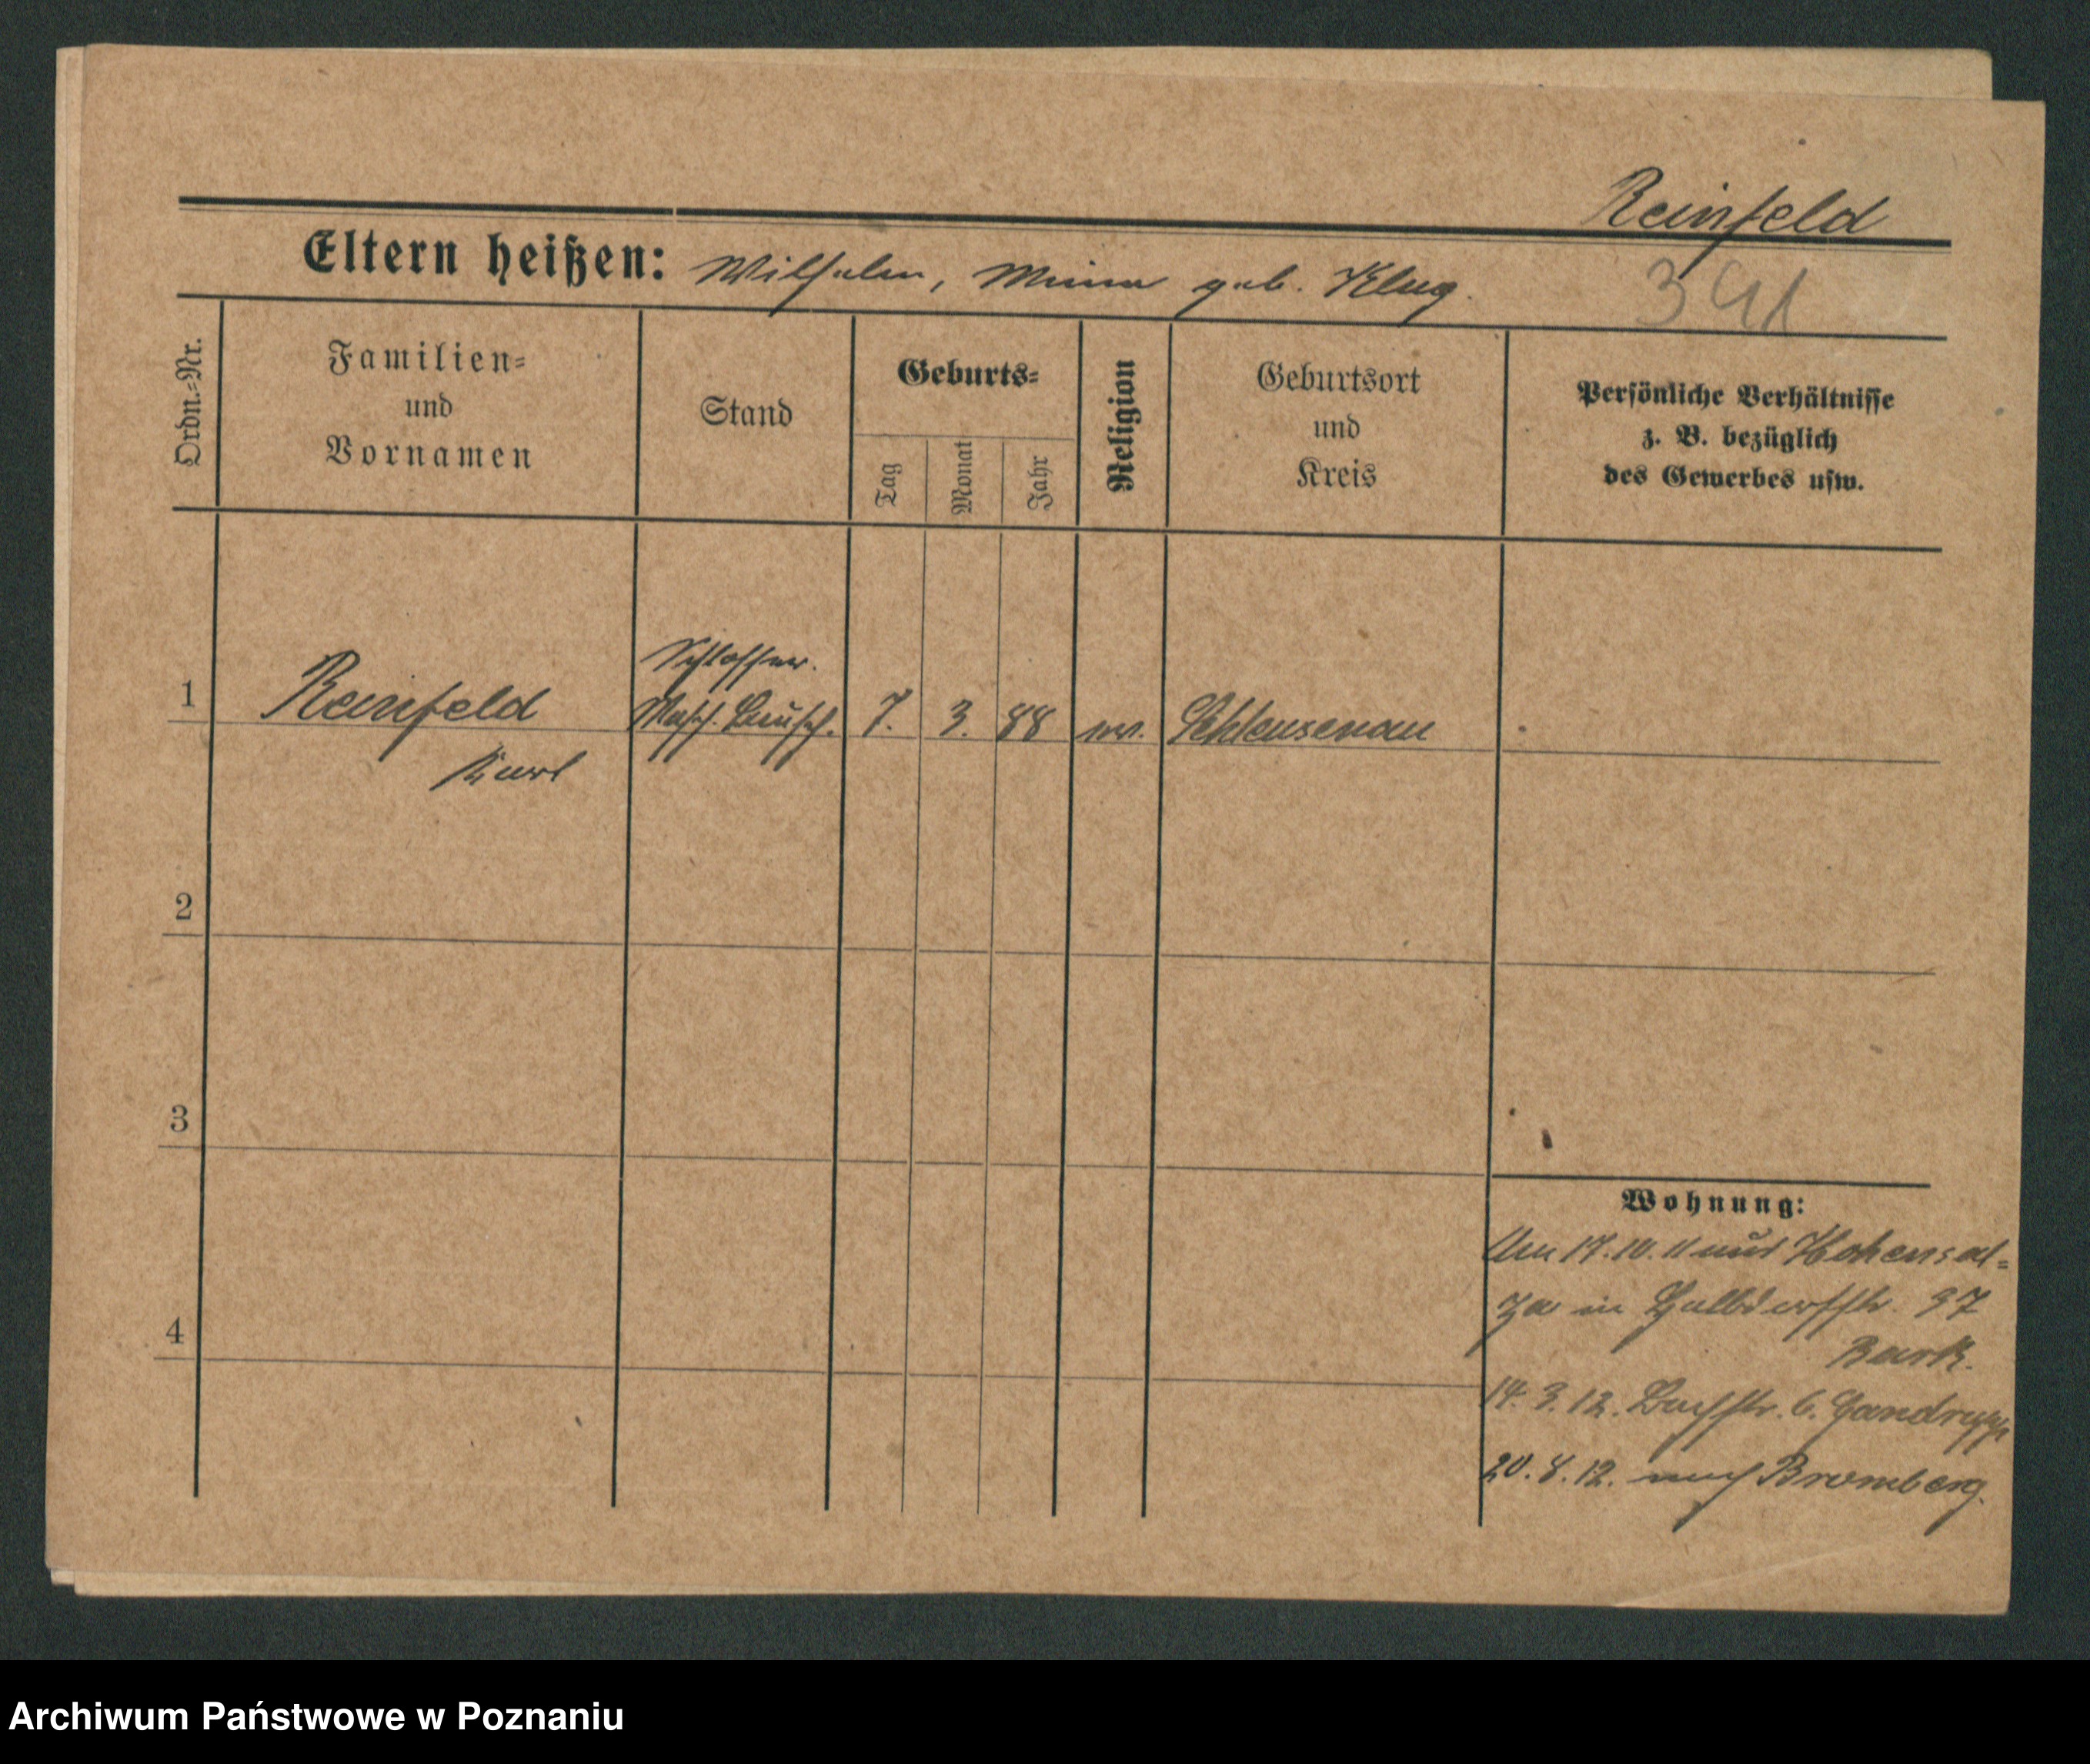 Reinfeld
Eltern heißen: Wilhelm, Minna geb. Klug.
391
Ordn.=Nr.
Familien=
und
Vornamen
Stand
Geburts=
Tag
Monat
Jahr
Religion
Geburtsort
und
Kreis
Persönliche Verhältnisse
z. B. bezüglich
des Gewerbes usw.
Schlosser.
1 Reinfeld 7. 3. 88 ev. Schleusenau
Kurl
2
3
4
Wohnung:
Am 17.10.11 aus Hohensal=
za in Halbdorfstr. 37
14. 3. 12. 6.
20. 8. 12. nach Bromberg.
Archiwum Państwowe w Poznaniu